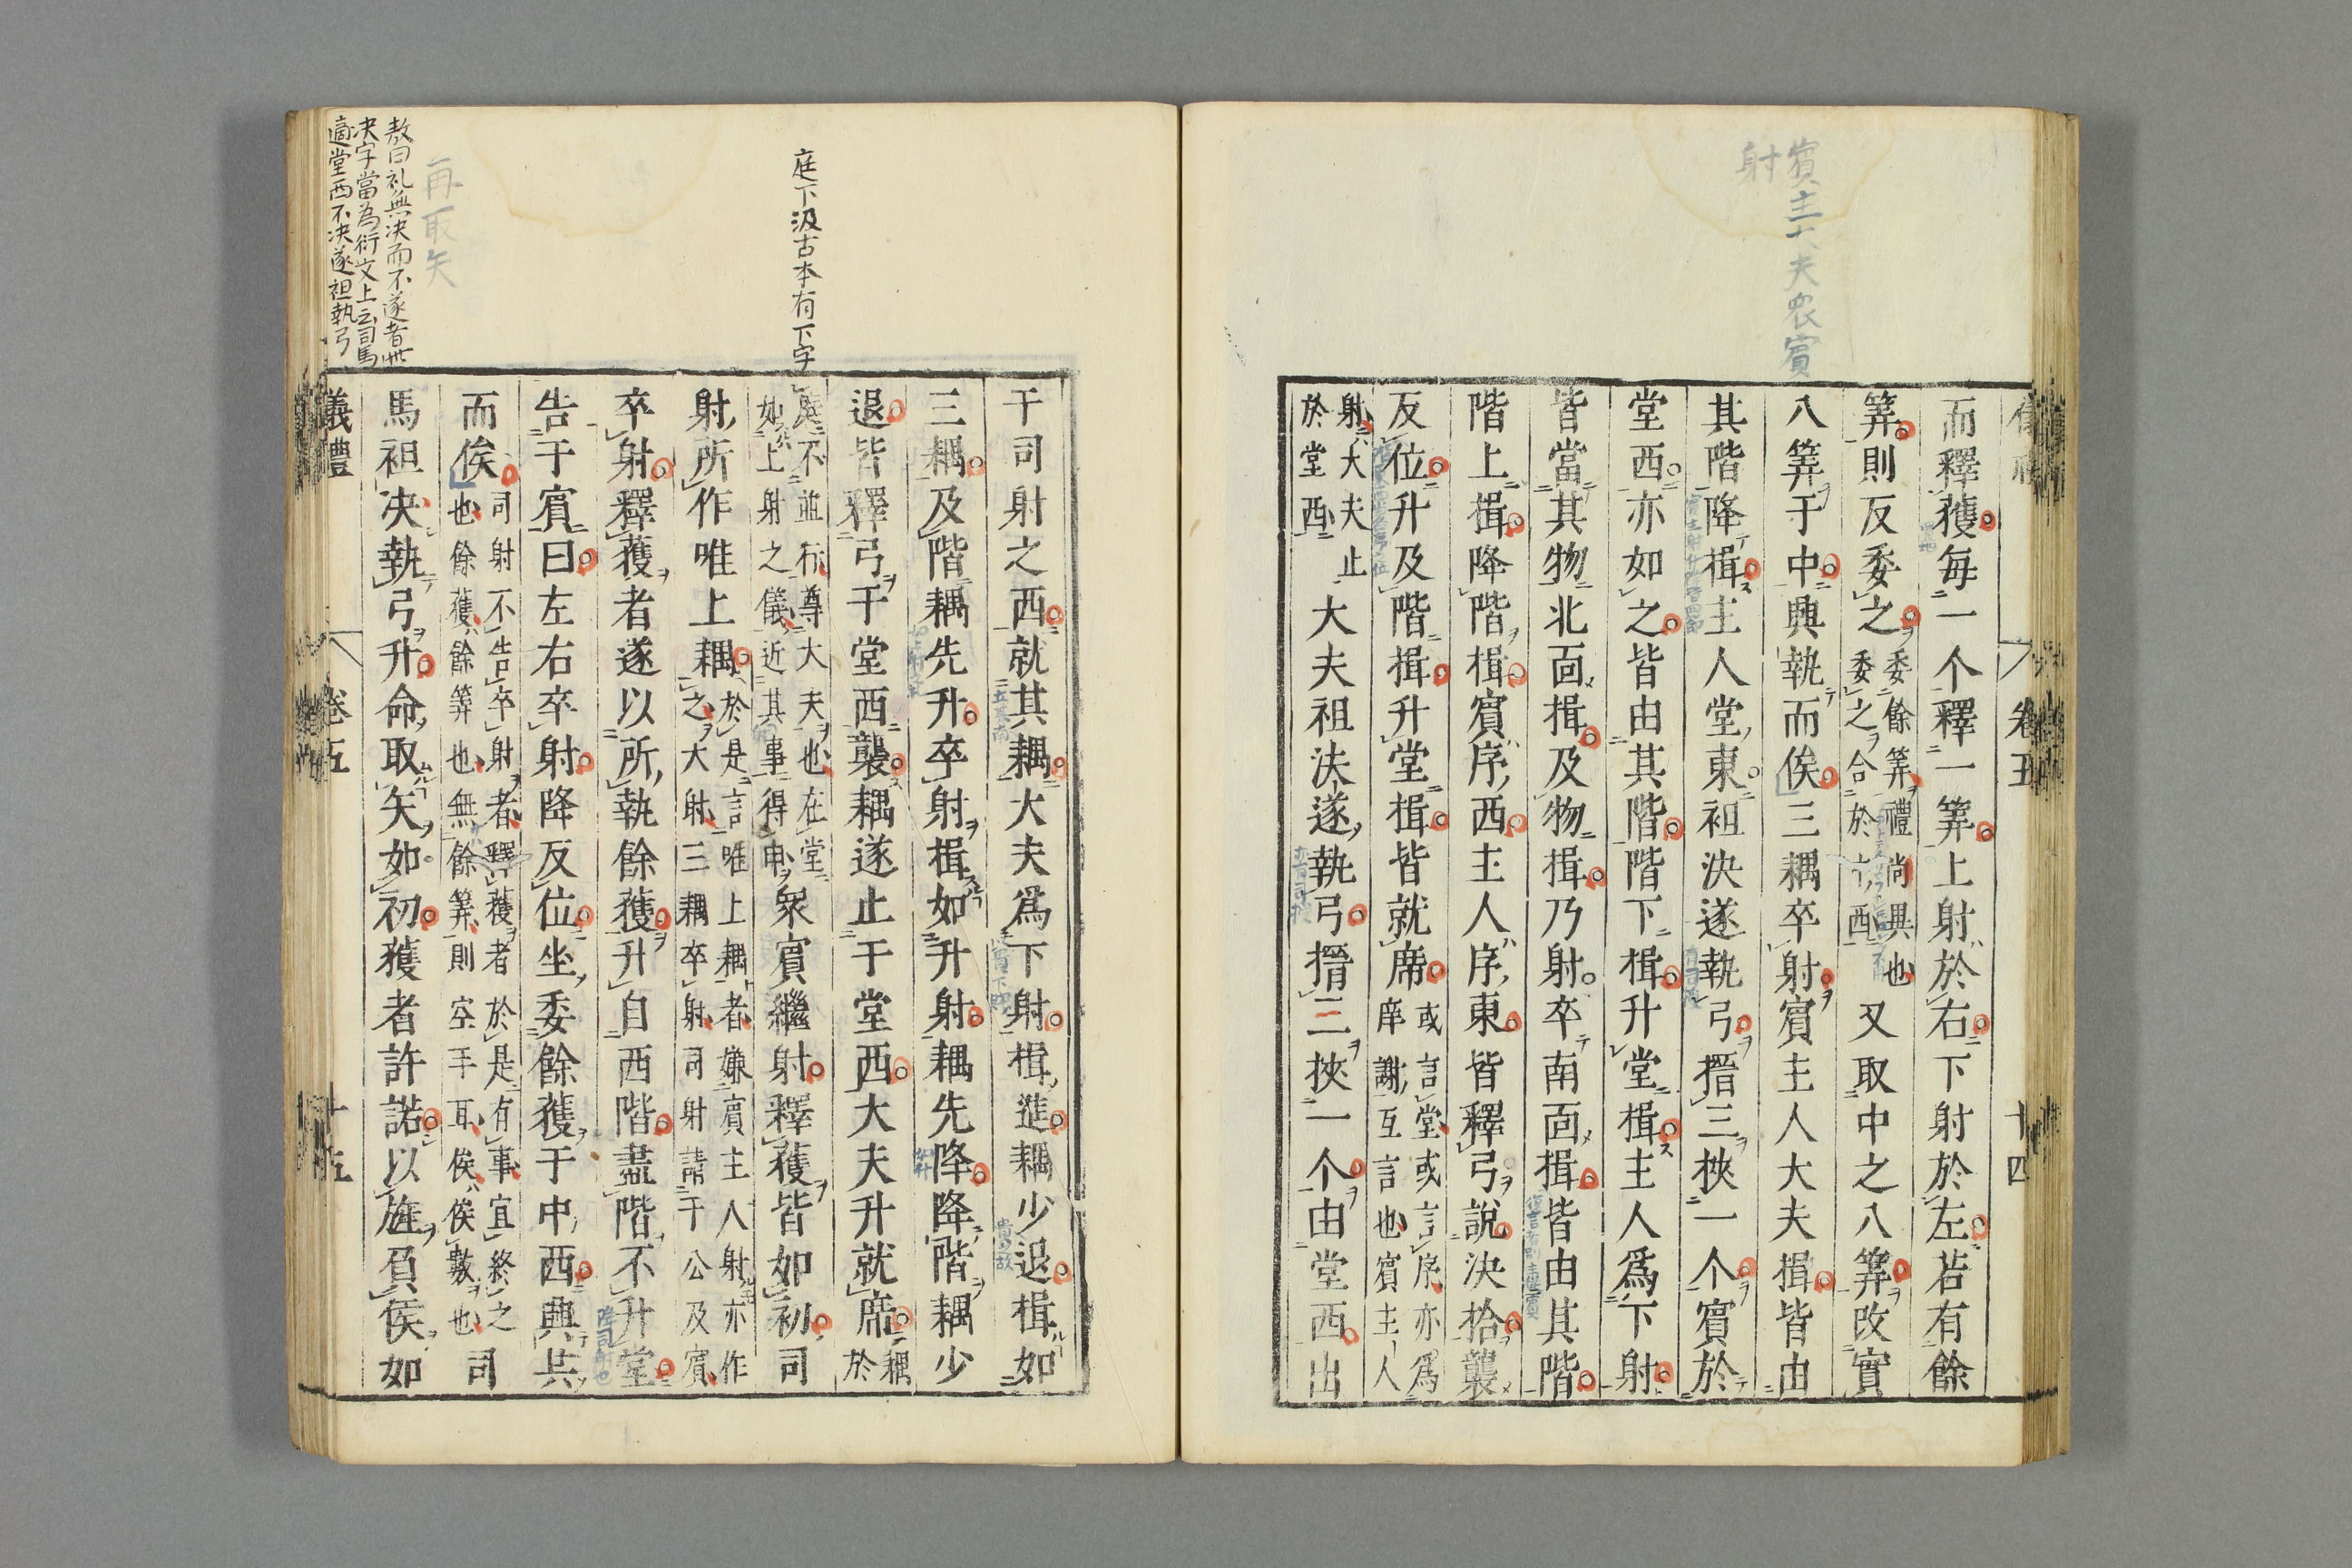 賓主大夫衆賓
射
而釋獲每一个釋一筭上射於右下射於左若有餘
筭則反委之委餘筭禮尚異也委之合於中西又取中之八筭改實
八筭于中興執而俟三耦卒射賓主人大夫揖皆由
其階降揖主人堂東袒決遂執弓搢三挾一个賓於
堂西亦如之皆由其階階下揖升堂揖主人爲下射
皆當其物北面揖及物揖乃射卒南面揖皆由其階
階上揖降階揖賓序西主人序東皆釋弓說決拾襲
反位升及階揖升堂揖皆就席或言堂或言序亦爲庠謝互言也賓主人
射大夫止於堂西大夫袒決遂執弓搢三挾一个由堂西出
卷五
十四
庭下汲古本有下字
再取矢
敖曰礼無决而不遂者此
决字當為衍文上云司馬
適堂西不决遂袒執弓
于司射之西就其耦大夫爲下射揖進耦少退揖如
三耦及階耦先升卒射揖如升射耦先降降階耦少
退皆釋弓于堂西襲耦遂止于堂西大夫升就席耦於
庭不並行尊大夫也在堂如上射之儀近其事得申衆賓繼射釋獲皆如初司
射所作唯上耦於是言唯上耦者嫌賓主人射亦作之大射三耦卒射司射請于公及賓
卒射釋獲者遂以所執餘獲升自西階盡階不升堂
告于賓曰左右卒射降反位坐委餘獲于中西興共
而俟司射不告卒射者釋獲者於是有事宜終之也餘獲餘筭也無餘筭則空手耳俟俟數也司
馬袒决執弓升命取矢如初獲者許諾以旌負侯如
儀禮
卷五
十五